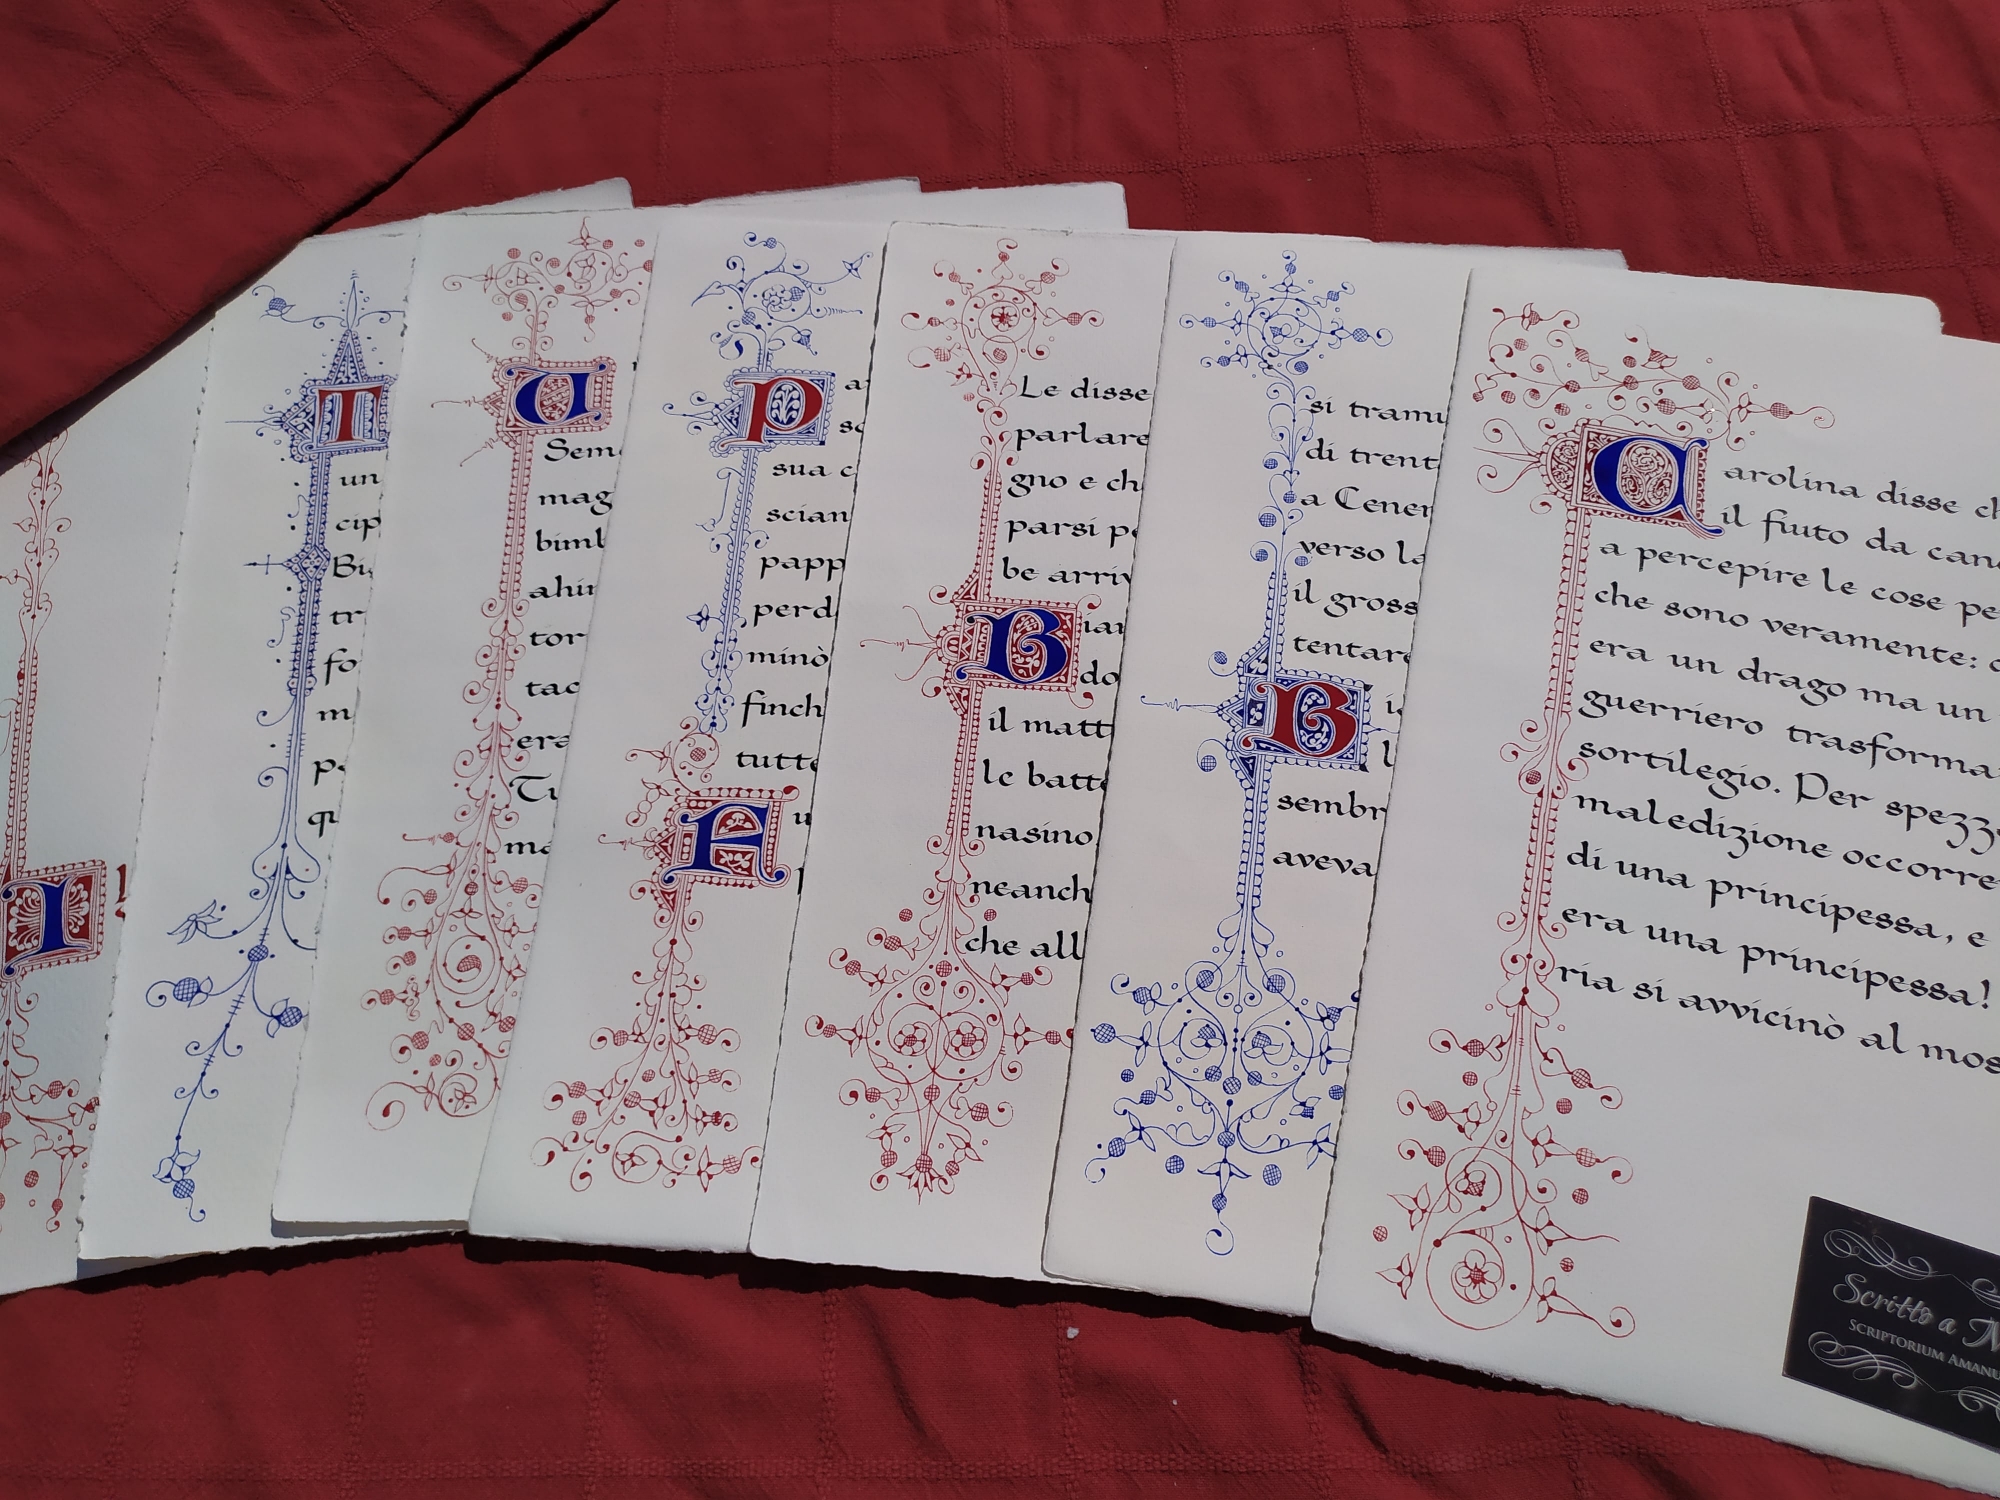 I
T
un
cip
Bi
tr
fo
m
p
qu
U
Sem
mag
bimb
ahim
tor
tac
era
Tu
me
P
a
sc
sua c
scian
papp
perd
minò
finch
tutte
E u
Le disse
parlare
gno e ch
parsi pe
be arriv
Bian
do
il matt
le batte
nasino
neanch
che all
si tramu
di trent
a Cener
verso la
il gross
tentare
B
l
sembr
aveva
Carolina disse ch
il fiuto da cane
a percepire le cose pe
che sono veramente: c
era un drago ma un
guerriero trasforma
sortilegio. Per spezza
maledizione occorre
di una principessa, e
era una principessa!
ria si avvicinò al mos
Scritto a M
SCRIPTORIUM AMANU